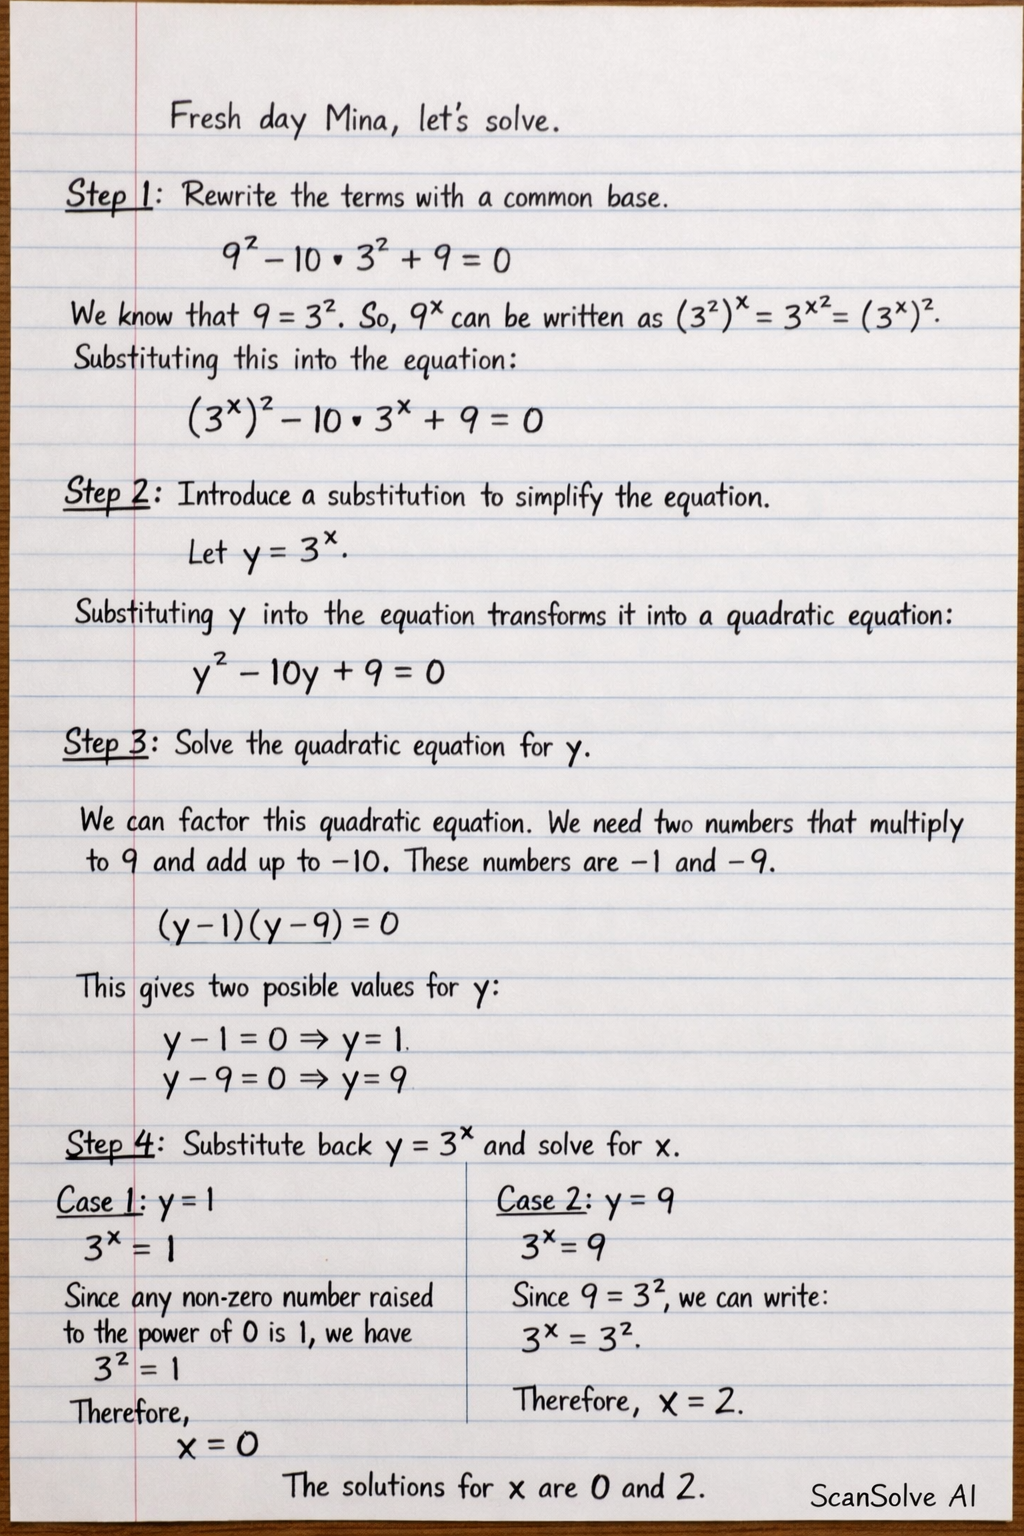 Fresh day Mina, let's solve.
Step 1: Rewrite the terms with a common base.
9² – 10 • 3² + 9 = 0
We know that 9 = 3². So, 9ˣ can be written as (3²)ˣ = 3ˣ² = (3ˣ)².
Substituting this into the equation:
(3ˣ)² – 10 • 3ˣ + 9 = 0
Step 2: Introduce a substitution to simplify the equation.
Let y = 3ˣ.
Substituting y into the equation transforms it into a quadratic equation:
y² – 10y + 9 = 0
Step 3: Solve the quadratic equation for y.
We can factor this quadratic equation. We need two numbers that multiply
to 9 and add up to –10. These numbers are –1 and –9.
(y – 1)(y – 9) = 0
This gives two posible values for y:
y – 1 = 0 ⇒ y = 1.
y – 9 = 0 ⇒ y = 9
Step 4: Substitute back y = 3ˣ and solve for x.
Case 1: y = 1
3ˣ = 1
Since any non-zero number raised
to the power of 0 is 1, we have
3² = 1
Therefore,
x = 0
Case 2: y = 9
3ˣ = 9
Since 9 = 3², we can write:
3ˣ = 3².
Therefore, x = 2.
The solutions for x are 0 and 2.
ScanSolve AI